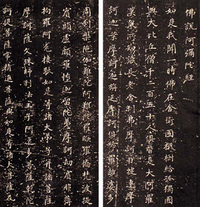 佛說阿彌陀經
如是我聞一時佛在舍衛國祇樹給孤獨園
與大比丘僧千二百五十人俱皆是大阿羅
漢眾所知識長老舍利弗摩訶目犍連摩
訶迦葉摩訶迦旃延摩訶俱絺羅離婆多
周利槃陀伽難陀阿難陀羅睺羅憍梵波提
賓頭盧頗羅墮迦留陀夷摩訶劫賓那薄
拘羅阿㝹樓馱如是等諸大弟子并諸菩薩
摩訶薩文殊師利法王子阿逸多菩薩乾陀
訶提菩薩常精進菩薩與如是等諸大菩薩及